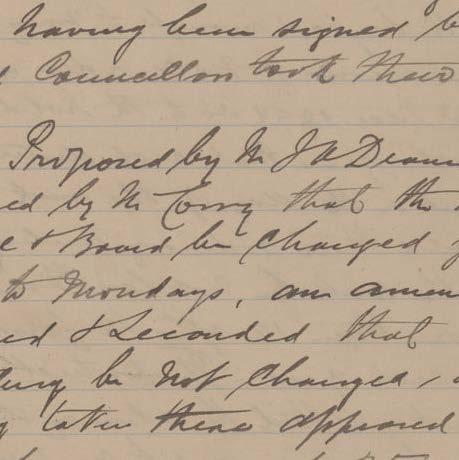 having been signed b
d Councillors took their
Proposed by Mr J A Deam
ed by Mr Corry that the
e & Board be changed f
to Mondays, an amen
ed & Seconded that
ting be not changed,
g taken there appeared